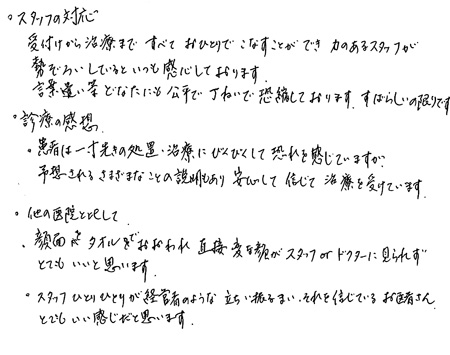 。スタッフの対応
受付けから治療まで すべて おひとりで こなすことができ 力のあるスタッフが
勢ぞろいしていると いつも感心しております。
言葉遣い等 どなたにも 公平で 丁ねいで 恐縮しております。すばらしいの限りです
。診療の感想
。患者は一寸先の処置・治療に びくびくして 恐れを感じていますが、
予想される さまざまなことの説明もあり 安心して 信じて 治療を受けています。
。他の医院と比して
顔面を タオルで おおわれ 直接 変な顔が スタッフorドクターに 見られず
とても いいと思います。
。スタッフ ひとりひとりが 経営者のような 立ち振るまい、それを信じている お医者さん
とても いい感じだと思います。